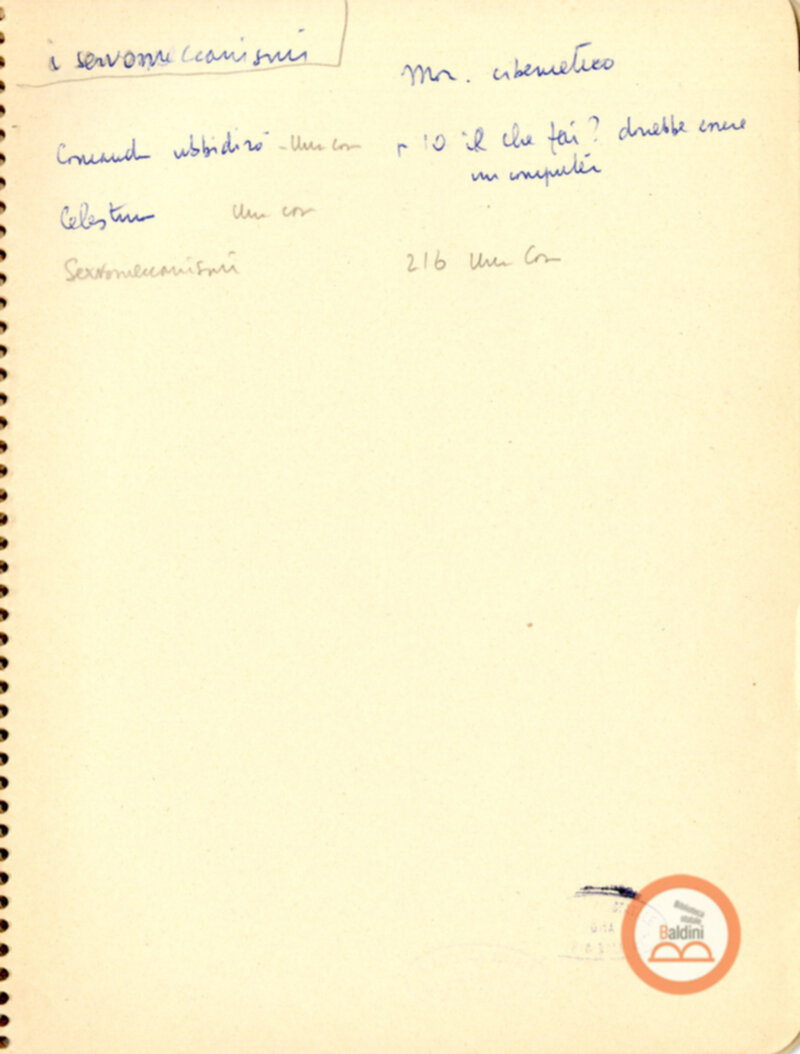 i servomeccanismi
Mor. cibernetico
Comanda ubbidirò - Um con
10 il che fai? dovrebbe essere
un computer
Um con
Servomeccanismi 216 Um Con
Biblioteca
statale
Baldini